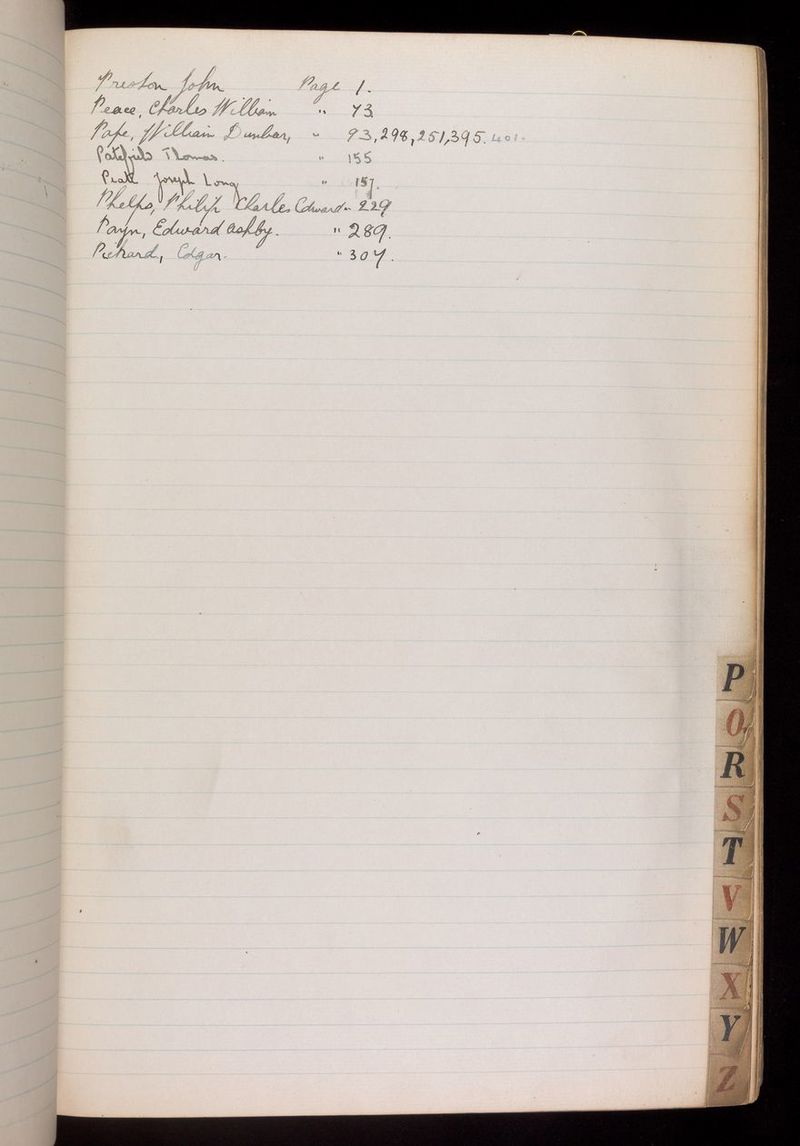 Preston John Page 1.
Peace, Charles William " 73
Pape, William Dunbar, " 93, 298, 251, 395. 401.
Patefield Thomas. " 155
Piatt Joseph Long " 157.
Phelps, Philip Charles Edward " 229
Payn, Edward Ashby. " 289.
Pickard, Edgar. " 307.
P
Q
R
S
T
V
W
X
Y
Z